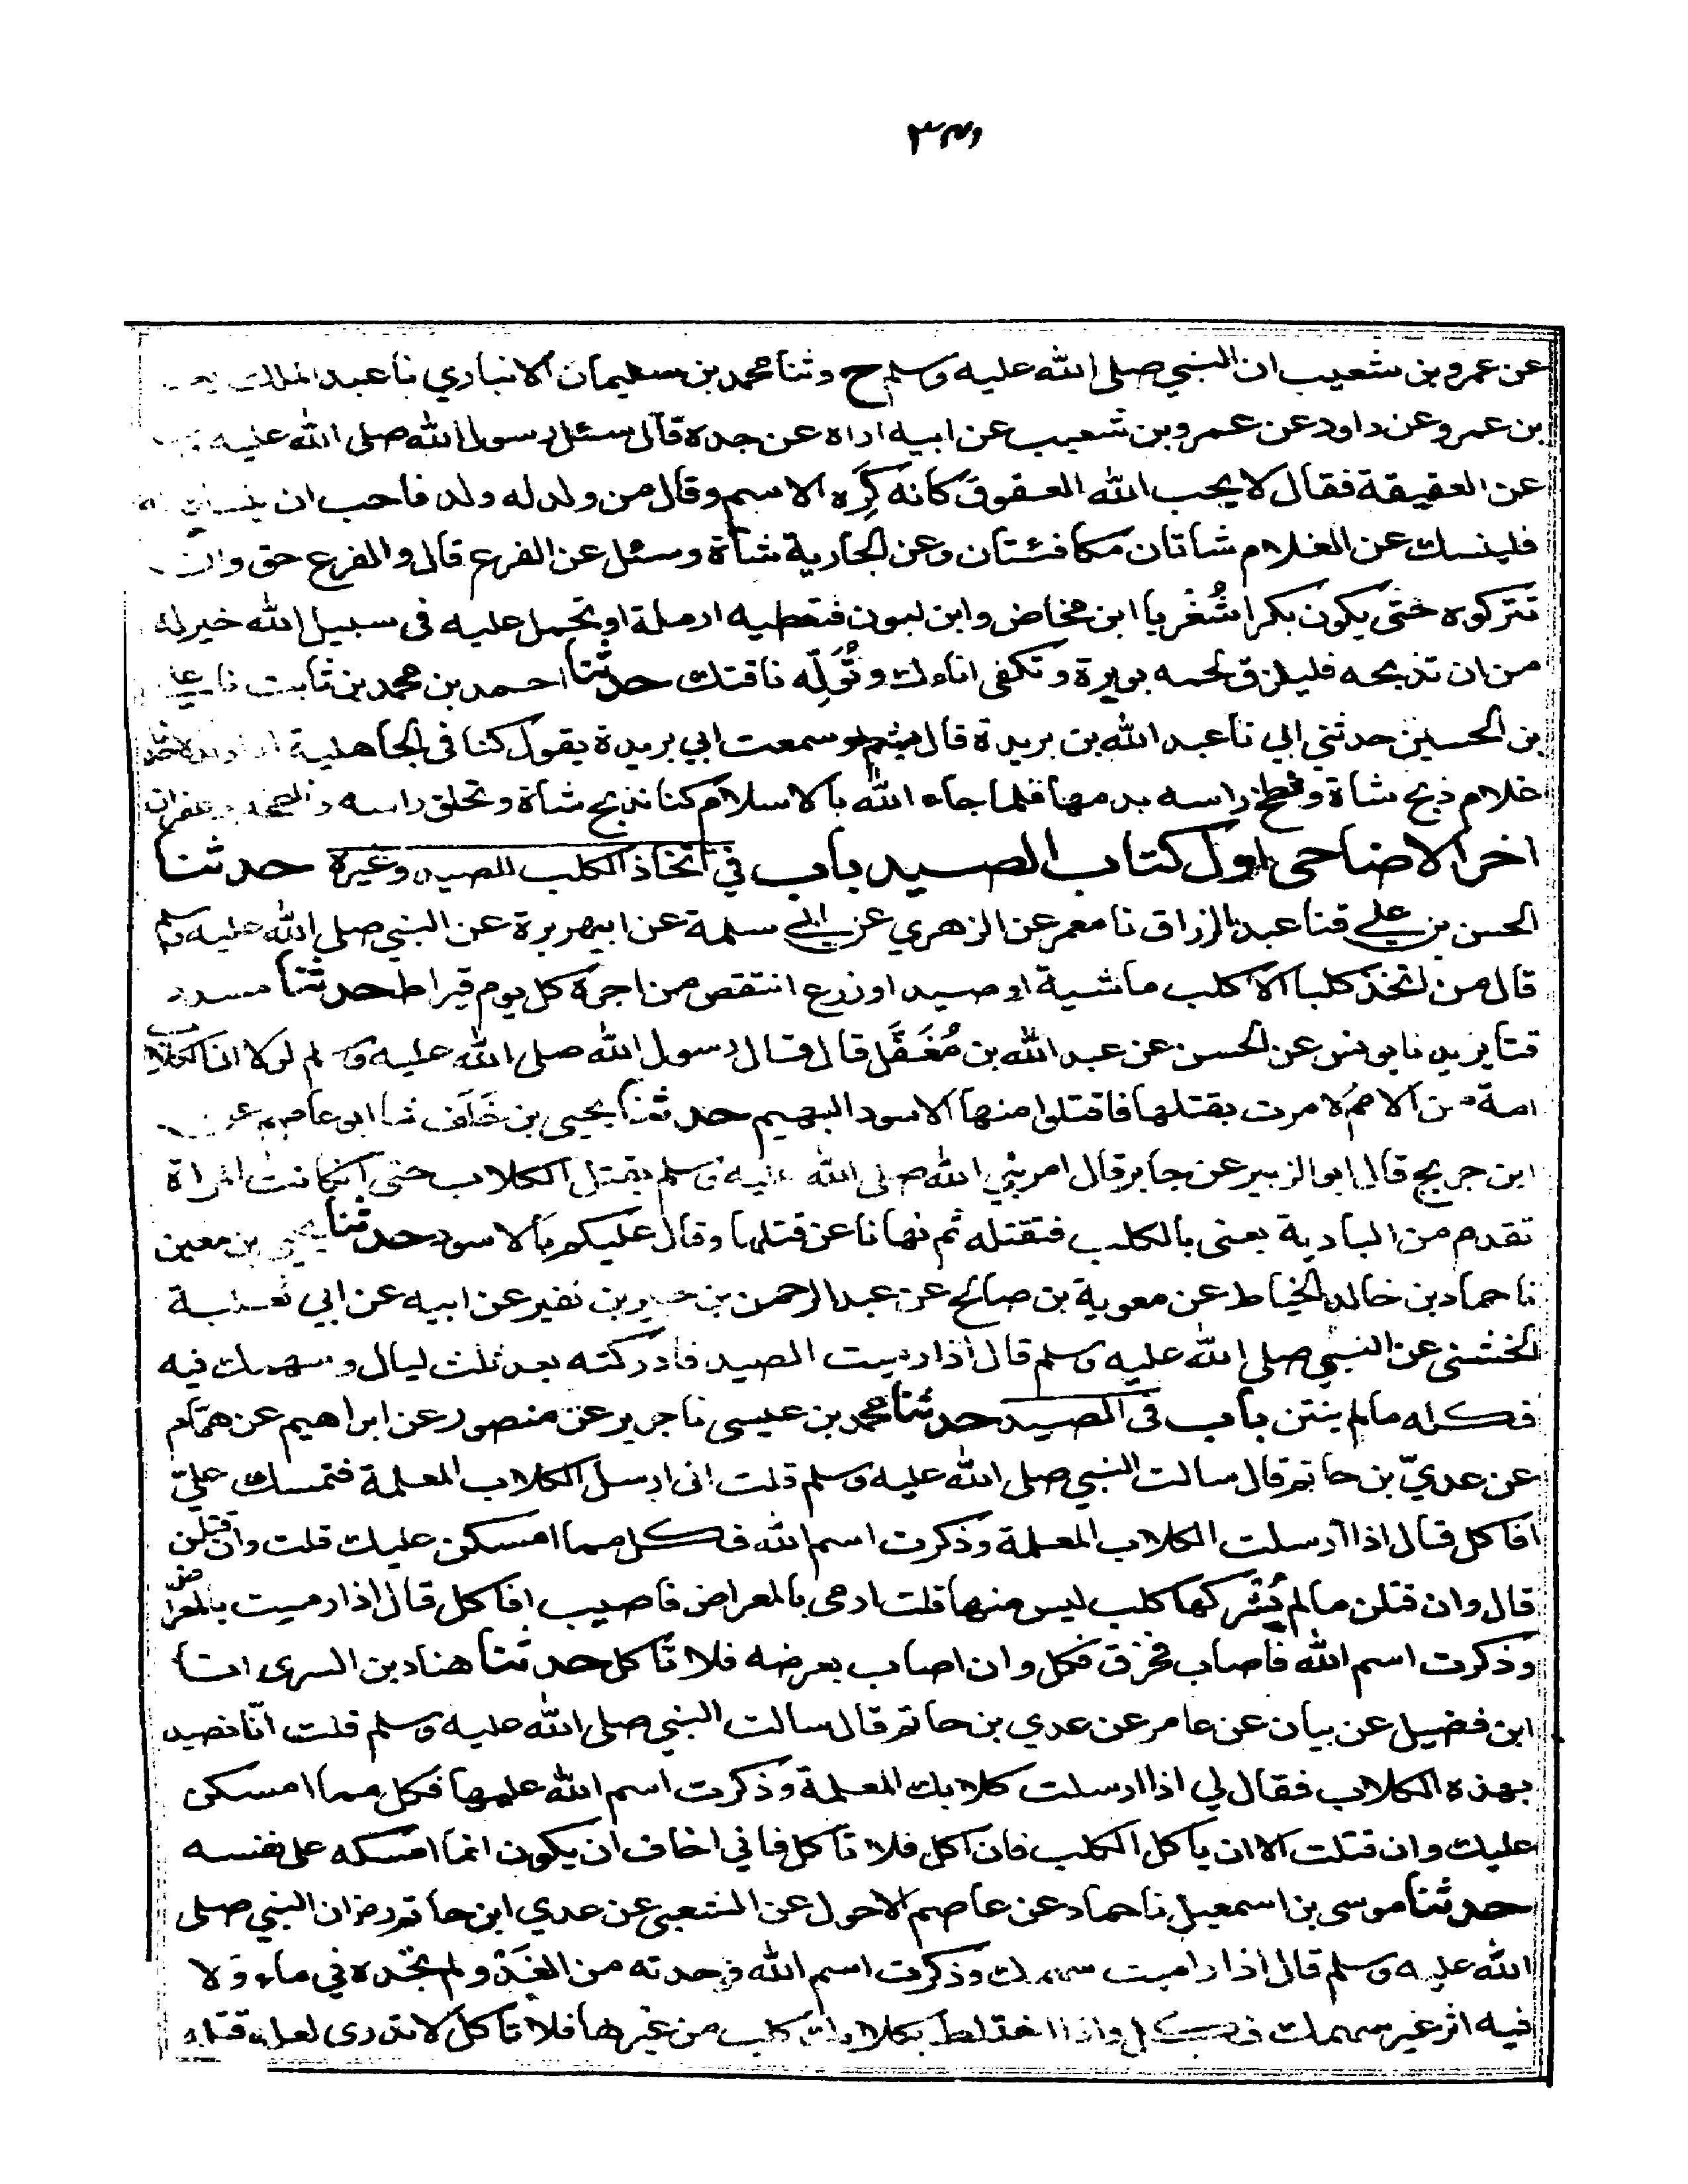 عن عمرو بن شعيب ان النبي صلى الله عليه وسلم ح وثنا محمد بن سليمان الانباري نا عبد الملك يعنى
بن عمرو عن داود عن عمرو بن شعيب عن ابيه اراه عن جده قال سئل رسول الله صلى الله عليه
عن العقيقة فقال لا يحب الله العقوق كانه كَرِه الاسم وقال من ولد له ولد فاحب ان ينسك
فلينسك عن الغلام شاتان مكافئتان وعن الجارية شاة وسئل عن الفرع قال والفرع حق وان
تتركوه حتى يكون بكرا شُغْزُبا ابن مخاض وابن لبون فتعطيه ارملة او تحمل عليه فى سبيل الله خير له
من ان تذبحه فليلزق لحمه بوبرة وتكفى اناءك وتُوَلِّه ناقتك حدثنا احمد بن محمد بن ثابت نا علي
بن الحسين حدثني ابي نا عبد الله بن بريدة قال سمعت ابي بريدة يقول كنا فى الجاهلية اذا ولد لاحدنا
غلام ذبح شاة ولطخ راسه بدمها فلما جاء الله بالاسلام كنا نذبح شاة ونحلق راسه ونلطخه بزعفران
اخر الاضاحى اول كتاب الصيد باب في اتخاذ الكلب للصيد وغيره حدثنا
الحسن بن علي قثنا عبد الرزاق نا معمر عن الزهري عن ابي سلمة عن ابيهريرة عن النبي صلى الله عليه وسلم
قال من اتخذ كلبا الا كلب ماشية او صيد او زرع انتقص من اجره كل يوم قيراط حدثنا مسدد
قثنا يزيد نا يونس عن الحسن عن عبد الله بن مُغَفَّل قال قال رسول الله صلى الله عليه وسلم لولا ان الكلاب
امة من الامم لامرت بقتلها فاقتلوا منها الاسود البهيم حدثنا يحيى بن خَلَف ثنا ابو عاصم عن
ابن جريج قال ابو الزبير عن جابر قال امر نبي الله صلى الله عليه وسلم بقتل الكلاب حتى ان كانت المراة
تقدم من البادية يعنى بالكلب فنقتله ثم نهانا عن قتلها وقال عليكم بالاسود حدثنا يحيى بن معين
نا حماد بن خالد الخياط عن معوية بن صالح عن عبد الرحمن بن جبير بن نفير عن ابيه عن ابي ثعلبة
الخشنى عن النبي صلى الله عليه وسلم قال اذا رميت الصيد فادركته بعد ثلث ليال وسهمك فيه
فكله ما لم ينتن باب فى الصيد حدثنا محمد بن عيسى نا جرير عن منصور عن ابراهيم عن همام
عن عديّ بن حاتم قال سالت النبي صلى الله عليه وسلم قلت انى ارسل الكلاب المعلمة فتمسك عليّ
افاكل قال اذا ارسلت الكلاب المعلمة وذكرت اسم الله فكل مما امسكن عليك قلت وان قتلن
قال وان قتلن ما لم يُشركها كلب ليس منها قلت ارمى بالمعراض فاصيب افاكل قال اذا رميت بالمعراض
وذكرت اسم الله فاصاب فخزق فكل وان اصاب بعرضه فلا تاكل حدثنا هناد بن السرى انا
ابن فضيل عن بيان عن عامر عن عدي بن حاتم قال سالت النبي صلى الله عليه وسلم قلت انّا نصيد
بهذه الكلاب فقال لي اذا ارسلت كلابك المعلمة وذكرت اسم الله عليها فكل مما امسكن
عليك وان قتلت الا ان ياكل الكلب فان اكل فلا تاكل فاني اخاف ان يكون انما امسكه على نفسه
حدثنا موسى بن اسمعيل نا حماد عن عاصم الاحول عن الشعبى عن عدي ابن حاتم رضـ ان النبي صلى
الله عليه وسلم قال اذا راميت سهمك وذكرت اسم الله فوجدته من الغَدْ ولم تجده في ماء ولا
فيه اثر غير سهمك فكل واذا اختلط بكلابك كلب من غيرها فلا تاكل لا تدرى لعله قتله